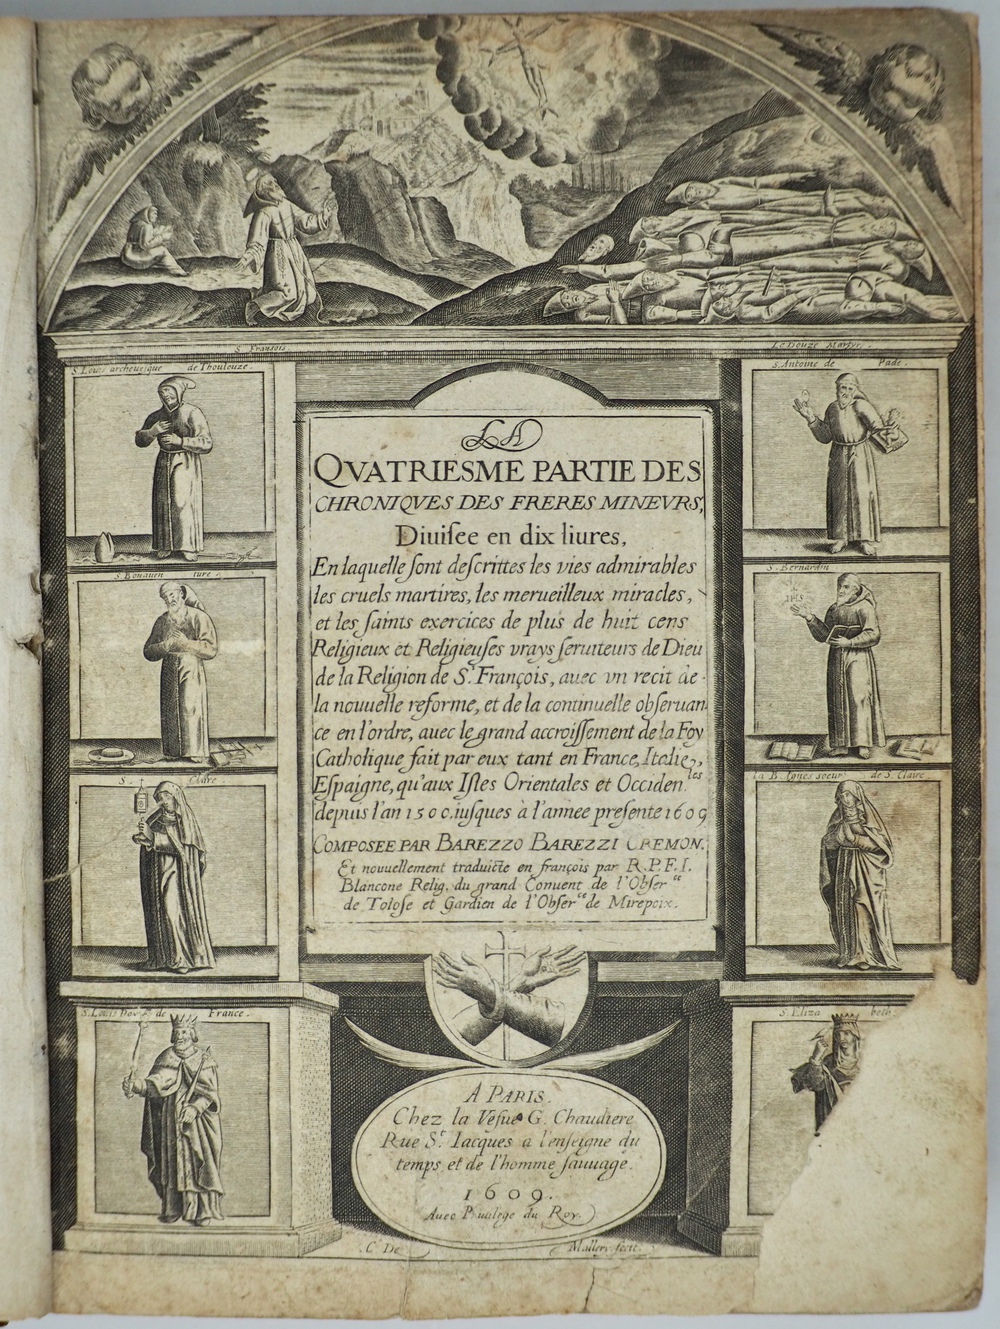 S. François
Le Douze Martyrs.
S. Louis archeuesque de Thoulouze.
S. Antoine de Pade.
S. Bonauenture.
S. Bernardin
IHS
S. Claire.
la B. Agnes soeur de S. Claire.
S. Louis Roy de France.
S. Elizabeth.
LA
QVATRIESME PARTIE DES
CHRONIQVES DES FRERES MINEVRS,
Diuiſee en dix liures,
En laquelle ſont deſcrittes les vies admirables
les cruels martires, les merueilleux miracles,
et les ſaints exercices de plus de huit cens
Religieux et Religieuſes vrays ſeruiteurs de Dieu
de la Religion de St. François, auec vn recit de
la nouuelle reforme, et de la continuelle obſeruan
ce en l'ordre, auec le grand accroiſſement de la Foy
Catholique fait par eux tant en France, Italie,
Eſpaigne, qu'aux Iſles Orientales et Occidenles
depuis l'an 1500. iuſques à l'annee preſente 1609
COMPOSEE PAR BAREZZO BAREZZI CREMON.
Et nouuellement traduicte en françois par R.P.F.I.
Blancone Relig. du grand Conuent de l'Obſerce
de Toloſe et Gardien de l'Obſerce de Mirepoix.
A PARIS.
Chez la Vefue G. Chaudiere
Rue St. Iacques a l'enſeigne du
temps et de l'homme ſauuage.
1609.
Auec Priuilege du Roy.
C. De Mallery fecit.